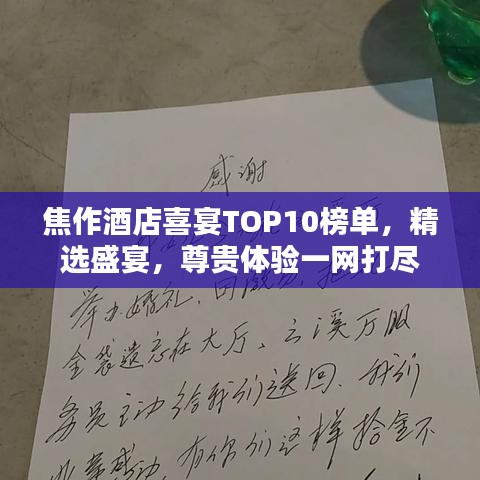 感谢
焦作酒店喜宴TOP10榜单，精
选盛宴，尊贵体验一网打尽
举办婚礼，回
金袋遗忘在大厅、云溪厅服
务员主动给我们送回、我们
感动，有你们这样拾金不